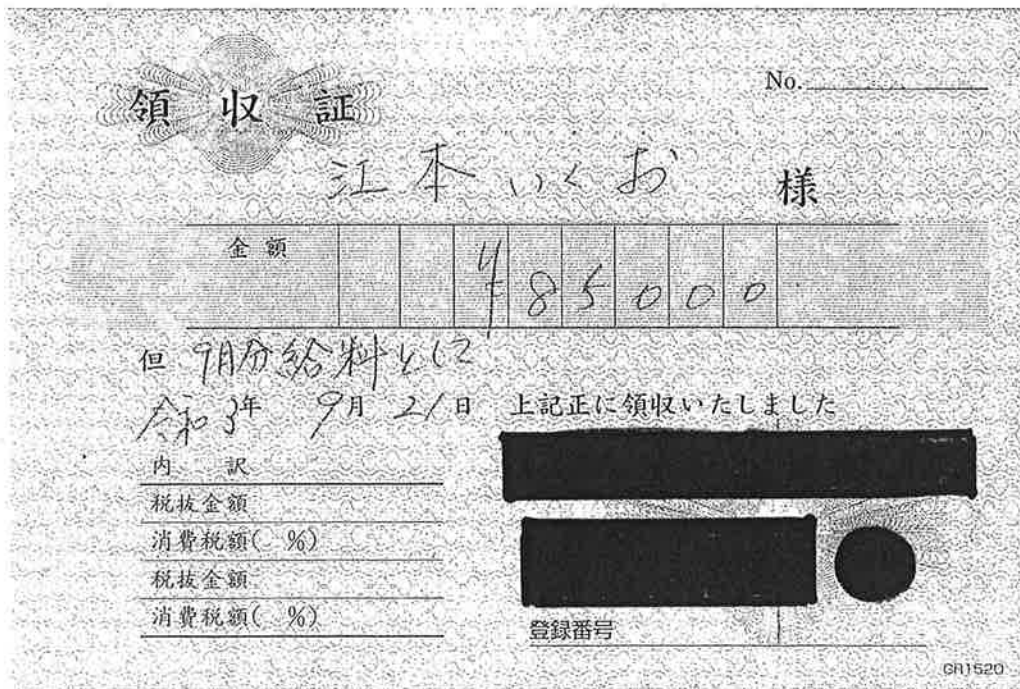 No.
領収証
江本いくお 様
金額 ¥85000
但 9月分給料として
令和3年 9月21日 上記正に領収いたしました
内訳
税抜金額
消費税額( %)
税抜金額
消費税額( %)
登録番号
GR1520